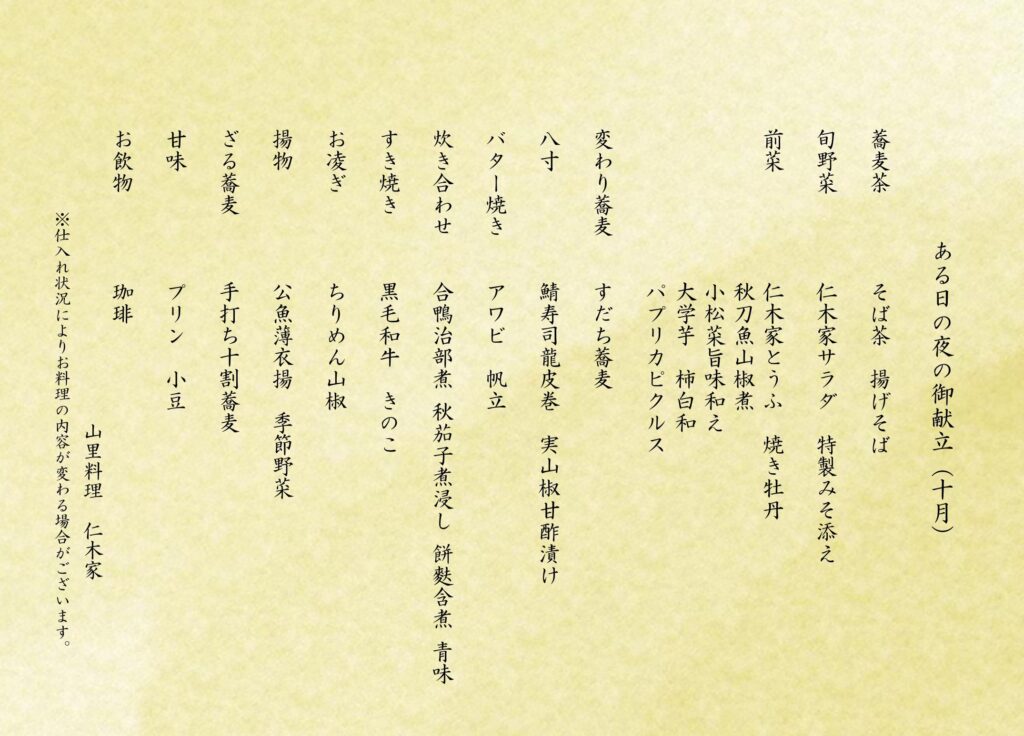 ある日の夜の御献立（十月）
蕎麦茶　そば茶　揚げそば
旬野菜　仁木家サラダ　特製みそ添え
前菜　仁木家とうふ　焼き牡丹
秋刀魚山椒煮
小松菜旨味和え
大学芋　柿白和
パプリカピクルス
変わり蕎麦　すだち蕎麦
八寸　鯖寿司龍皮巻　実山椒甘酢漬け
バター焼き　アワビ　帆立
炊き合わせ　合鴨治部煮　秋茄子煮浸し　餅麩含煮　青味
すき焼き　黒毛和牛　きのこ
お凌ぎ　ちりめん山椒
揚物　公魚薄衣揚　季節野菜
ざる蕎麦　手打ち十割蕎麦
甘味　プリン　小豆
お飲物　珈琲
山里料理　仁木家
※仕入れ状況によりお料理の内容が変わる場合がございます。